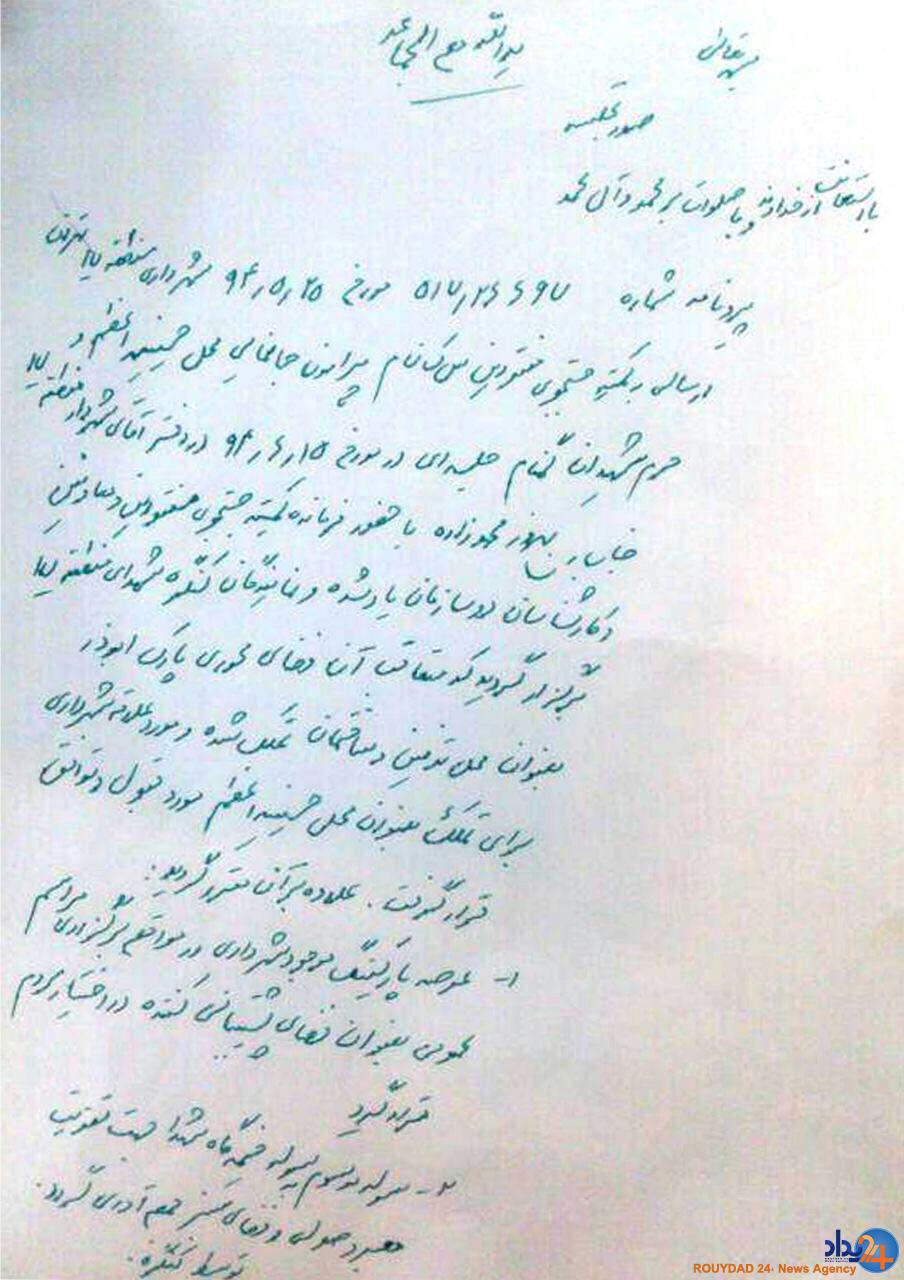 بسمه تعالی
یدالله مع الجماعه
صورتجلسه
با استعانت از خداوند و با صلوات بر محمد و آل محمد
پیرو نامه شماره ۵۱۷/۲۶۶۹۷ مورخ ۹۴/۵/۲۵ شهرداری منطقه ۱۷ تهران
ارسالی به کمیته جستجوی مفقودین پیرامون جانمایی محل حسینیه اعظم و
حرم شهیدان گمنام جلسه‌ای در مورخ ۹۴/۶/۱۵ در دفتر آقای شهردار منطقه ۱۷
جناب با حضور فرمانده کمیته جستجوی مفقودین و معاونین
و کارشناسان دو سازمان یاد شده و نمایندگان کنگره شهدای منطقه ۱۷
برگزار گردید که متعاقب آن فضای محوری پارک ابوذر
بعنوان محل تدفین و ساختمان تملک شده و مورد علاقه شهرداری
برای تملک بعنوان محل حسینیه اعظم مورد قبول و توافق
قرار گرفت. علاوه بر آن مقرر گردید:
۱- عرصه پارکینگ موجود شهرداری در مواقع برگزاری مراسم
عمومی بعنوان فضای پشتیبانی کننده در اختیار مردم
قرار گیرد
۲- سوله موسوم به سوله خیمه گاه شهدا جهت تقویت
معبر وصولی و فضای سبز جمع آوری گردد.
توسط کنگره.
رویداد 24
ROUYDAD 24- News Agency